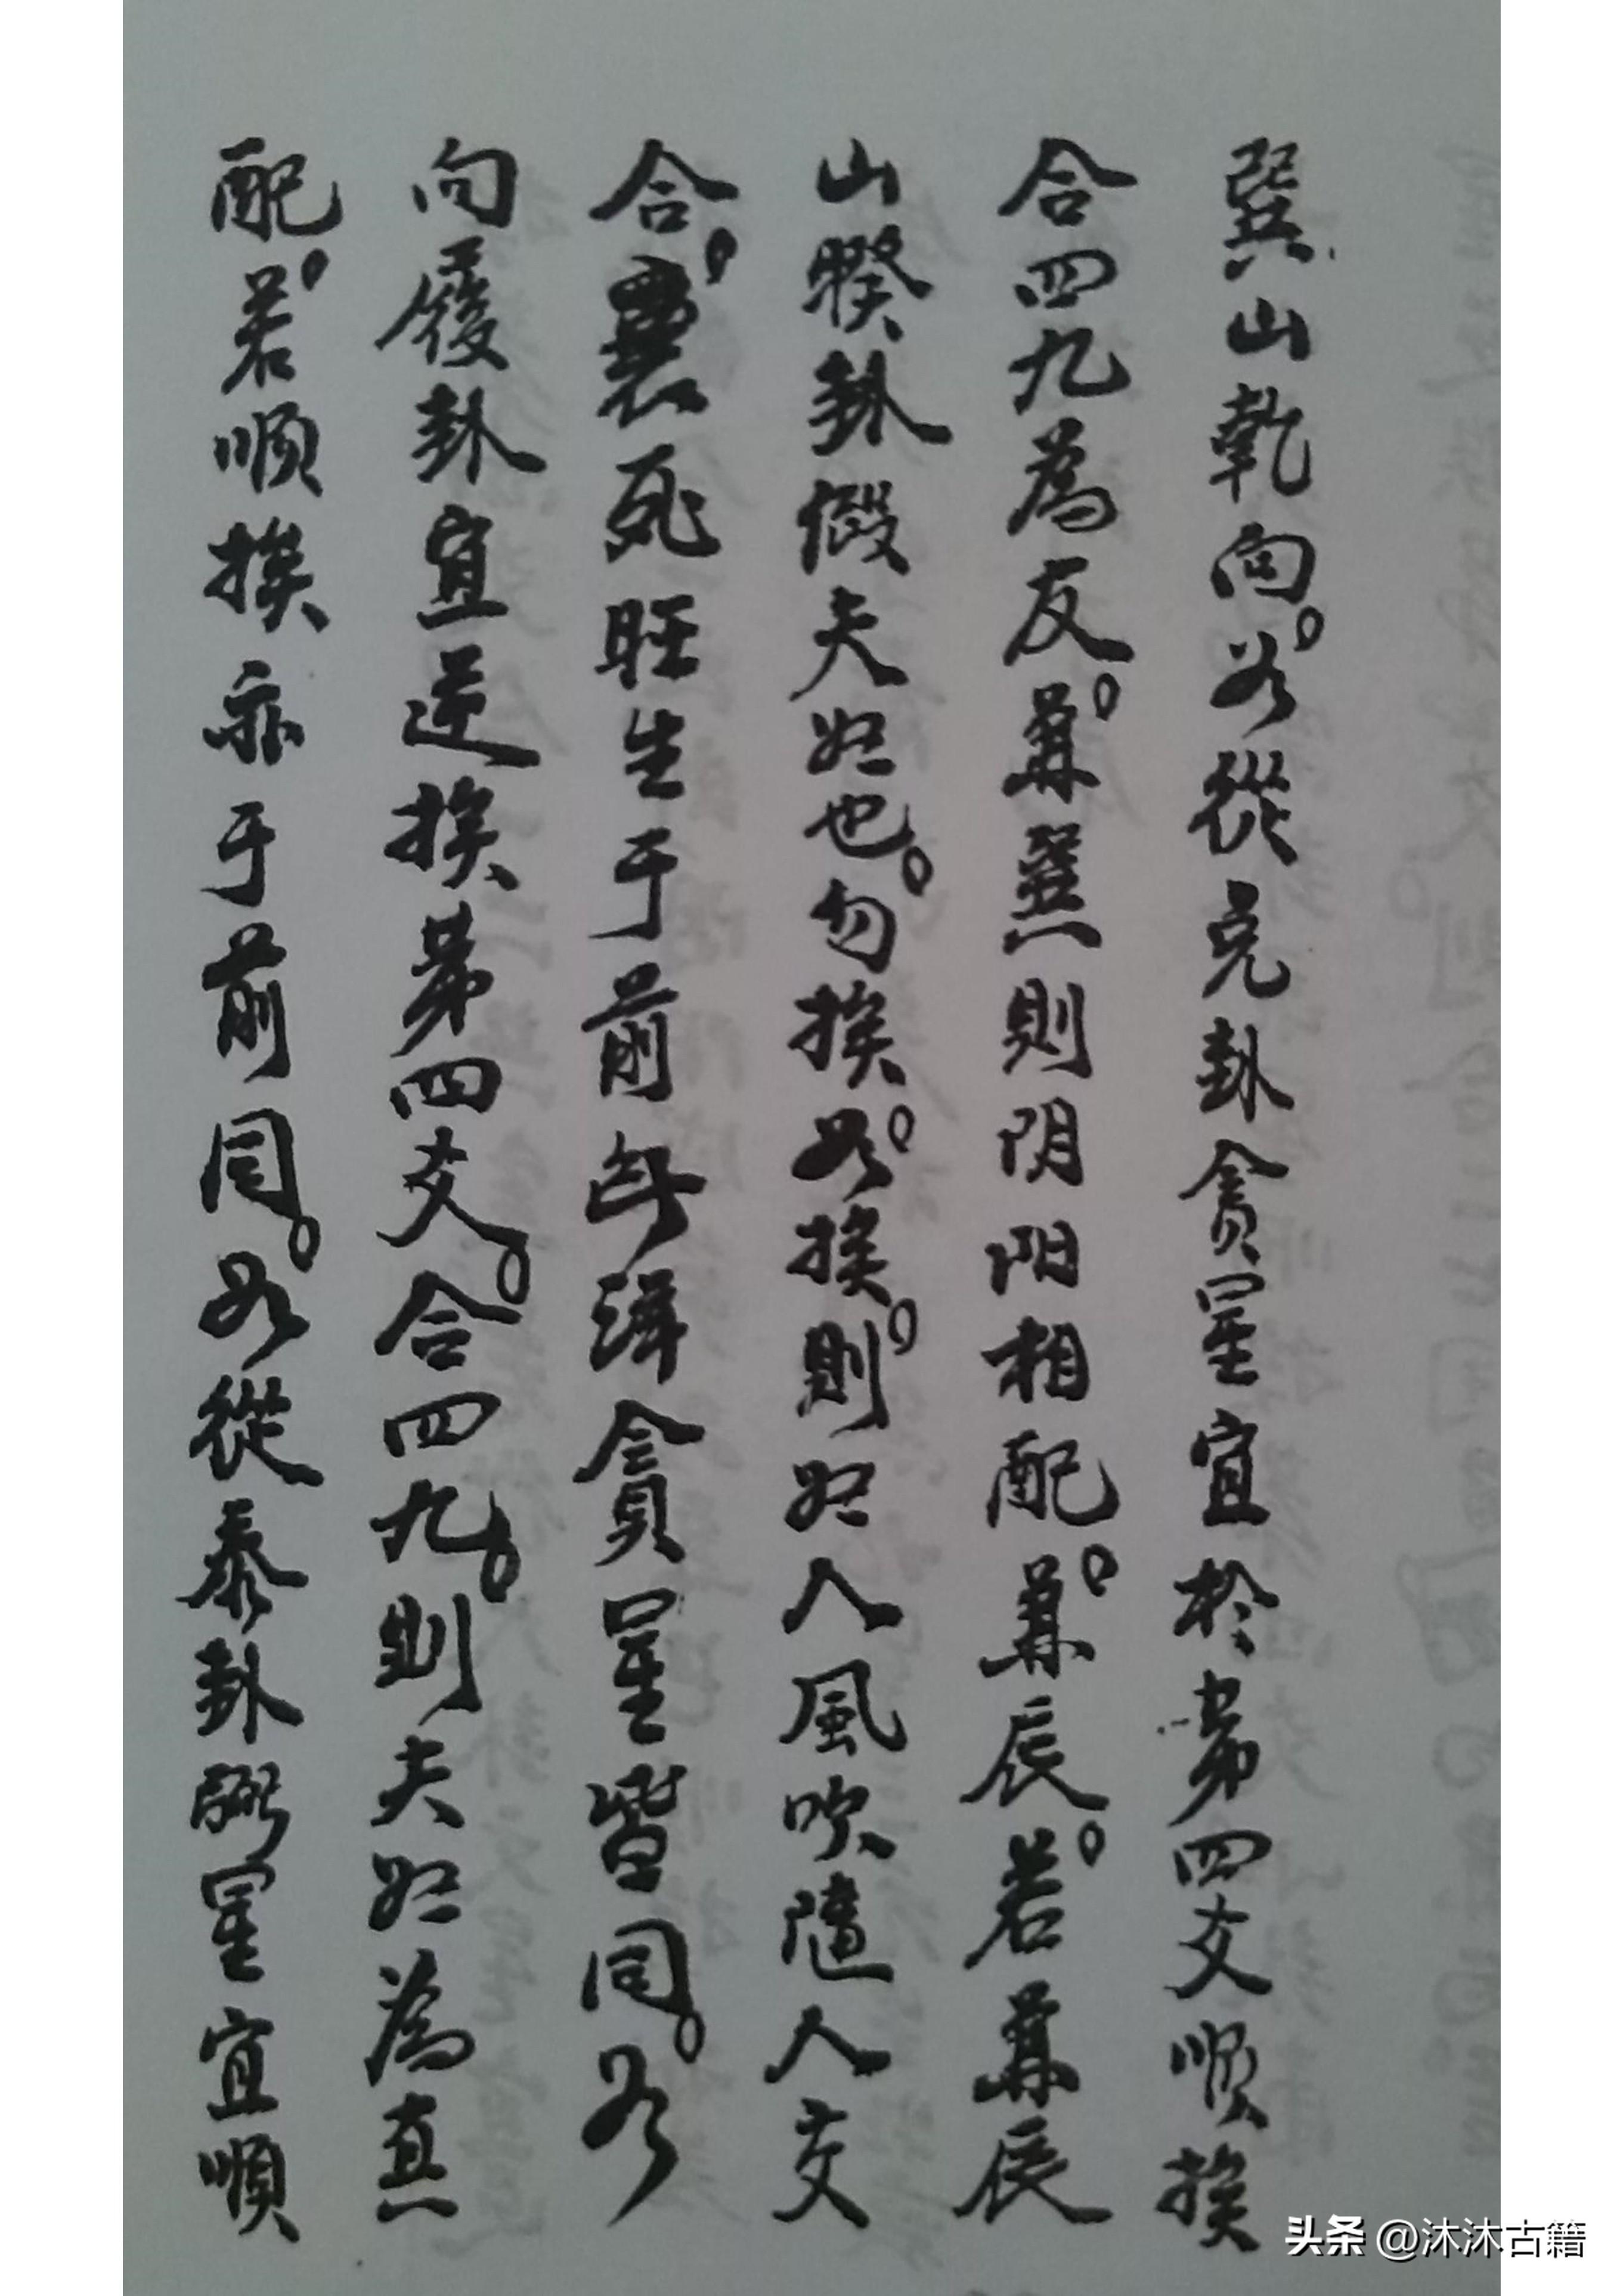 巽山乾向。如從兌卦貪星宜於第四爻順挨
合四九為友。兼巽則阴阳相配。兼辰。若兼辰
山睽卦假夫妇也。勿挨。如挨。則妇人風吹随人交
合。衰死旺生于前安排貪星皆同。如
向履卦宜逆挨第四爻。合四九。則夫妇為真
配。若順挨亦于前同。如從泰卦弼星宜順
头条 @沐沐古籍